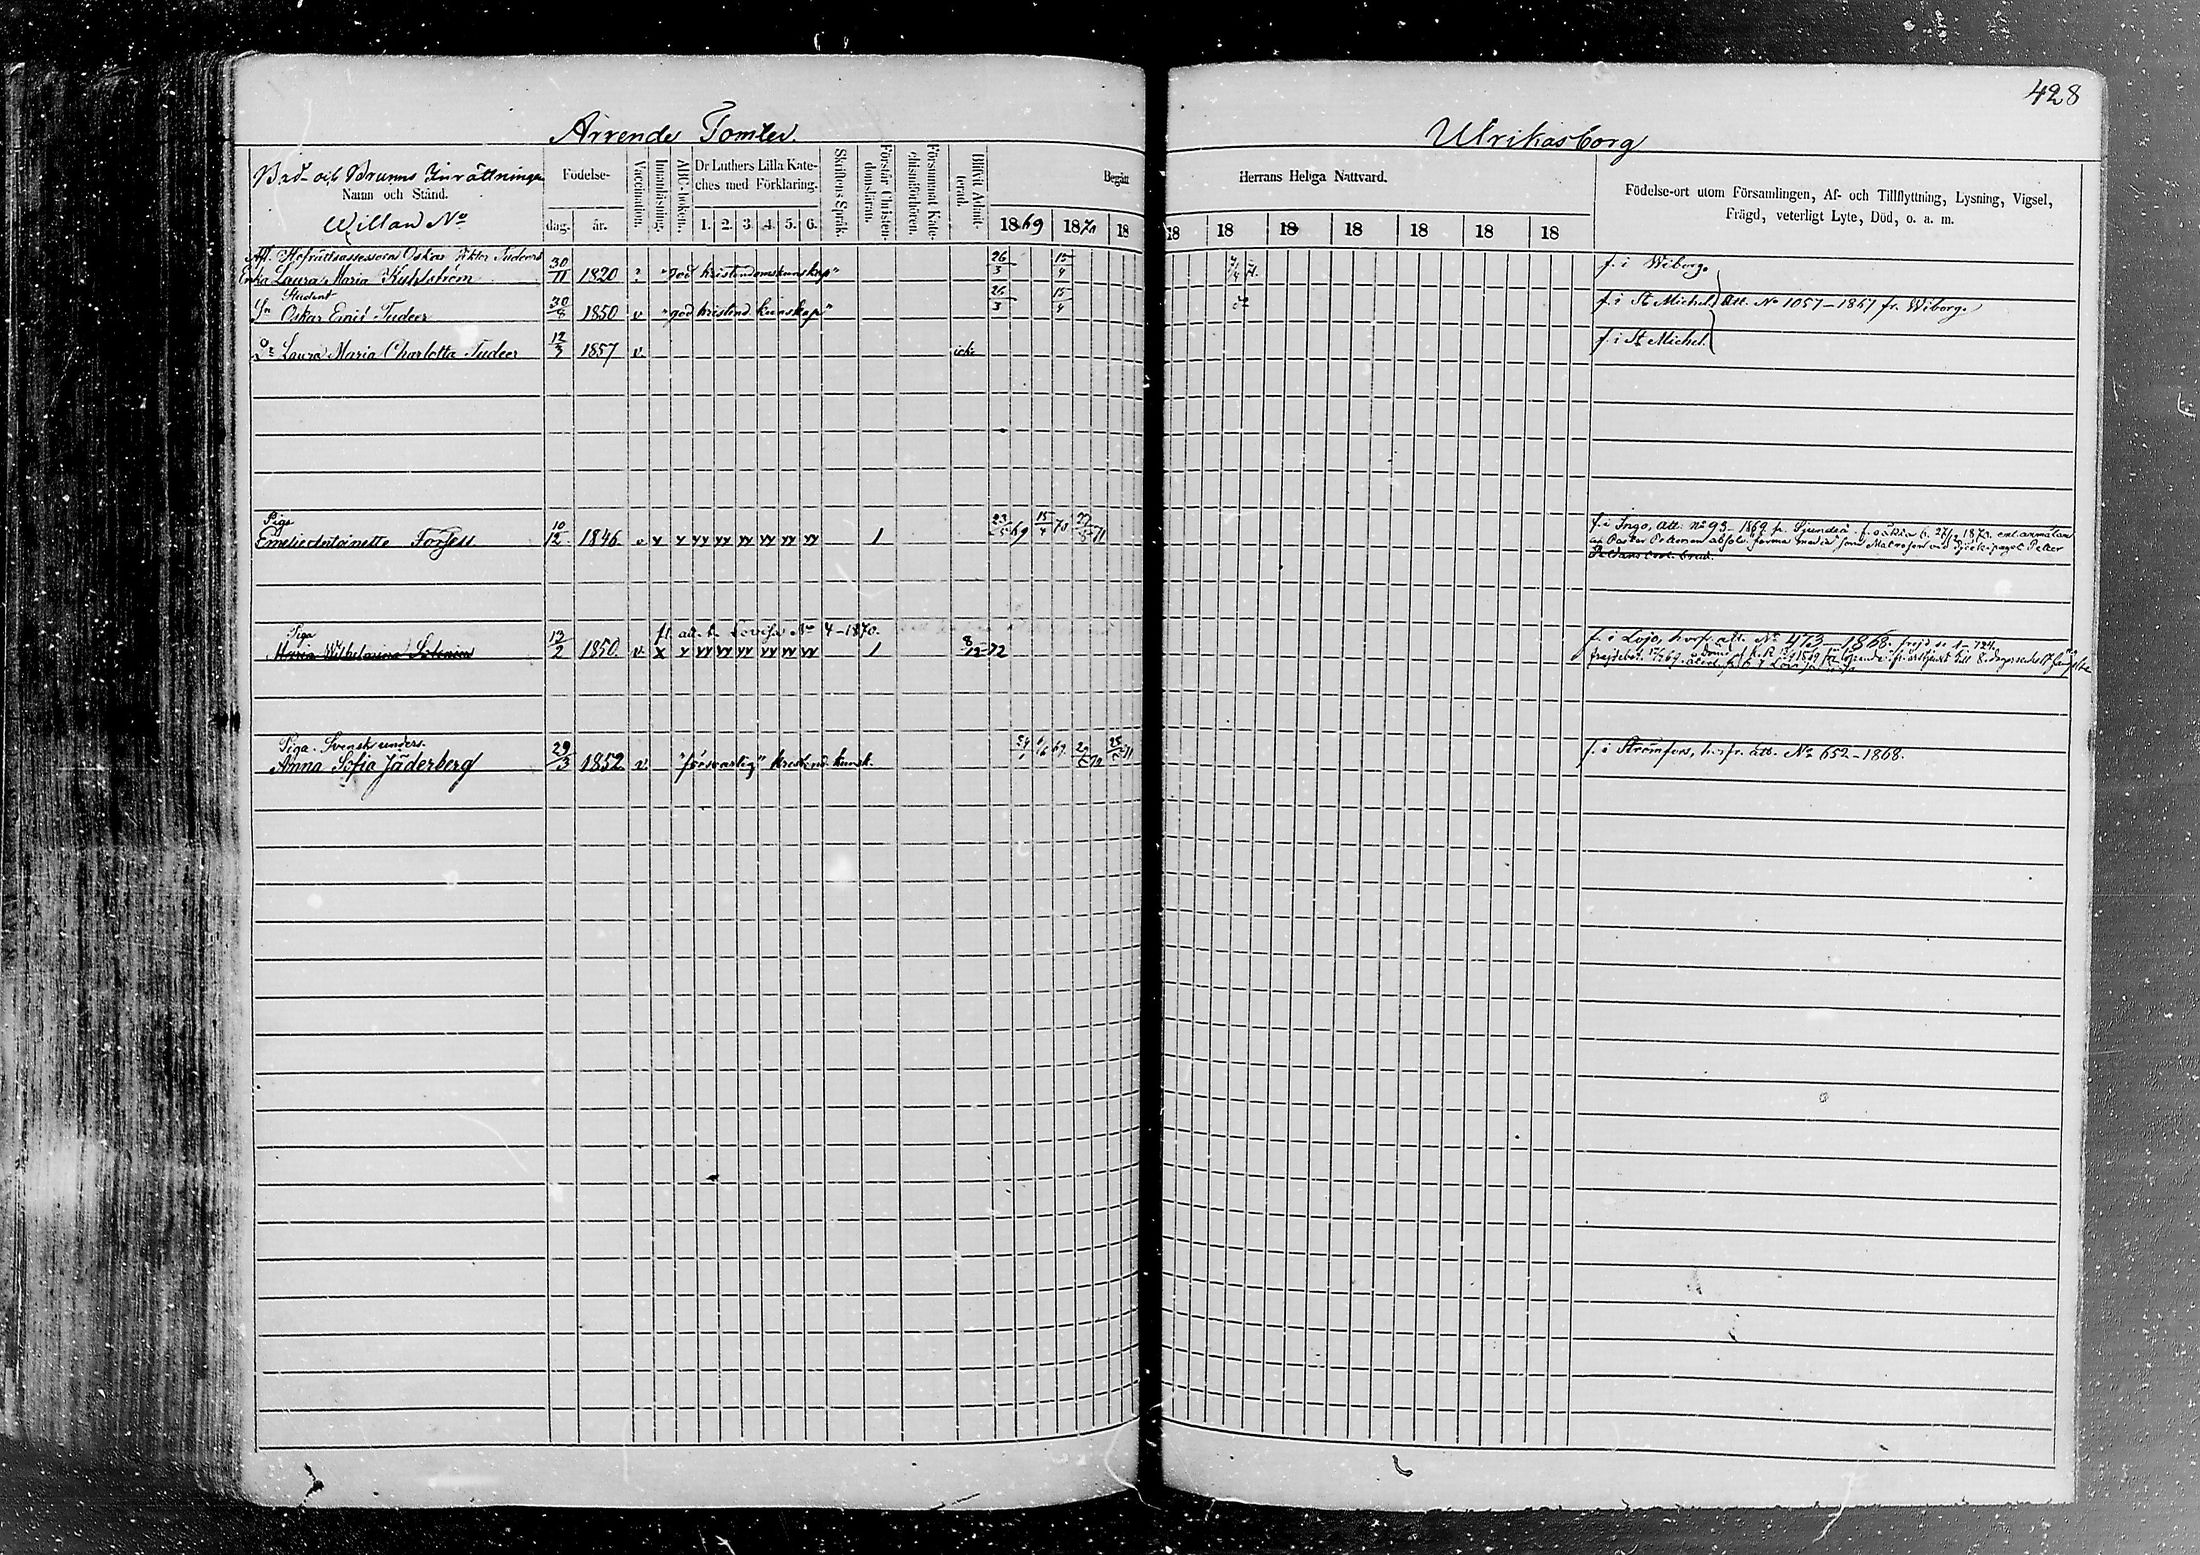 428
Arrende Tomter.
Ulrikasborg
Bad- och Brunns Inrättningen
Namn och Stånd.
Willan No
Födelse-
dag. år.
Vaccination.
Innanläsning.
ABC-boken.
Dr Luthers Lilla Kate-
ches med Förklaring.
1. 2. 3 4. 5. 6.
Skriftens Språk.
Förstår Christen-
domsläran.
Försummat Kate-
chismiförhören.
Blifvit Admit-
terad.
Begått
Herrans Heliga Nattvard.
1869 1870 18
18 18 18 18 18 18 18
Födelse-ort utom Församlingen, Af- och Tillflyttning, Lysning, Vigsel,
Frägd, veterligt Lyte, Död, o. a. m.
Afl. Hofrättsassessorn Oskar Viktor Tudeers
Enka Laura Maria Kuhlström 30/11 1820 ? "god kristendomskunskap" 26/3 15/4 f. i Wiborg
Student
Sn Oskar Emil Tudeer 30/8 1850 v "god kristend. kunskap" 26/3 15/4 f. i St Michel att. No 1057-1867 fr. Wiborg
Dr Laura Maria Charlotta Tudeer 12/3 1857 v icke f. i St Michel.
Piga
Emelie Antoinette Forsell 10/12 1846 v x x xx xx xx xx xx xx 1 23/5 69 15/4 70 71
f. i Ingo, att. No 93-1869 fr. Sjundeå 1870 enl. anmälan
af Pastor absolv. Matrosen Peter
brud.
fl. att. t. Lovisa No 4-1870.
Piga
Maria Wilhelmina 13/2 1850 v. x x xx xx xx xx xx xx 1 8/12 72
f. i Lojo, att. No 473-1868.
Piga. Svensk unders.
Anna Sofia Jäderberg 29/3 1852 v. "försvarlig" kristend. kunsk. 69 70 71
f. i Strömfors, fr. att. No 652-1868.